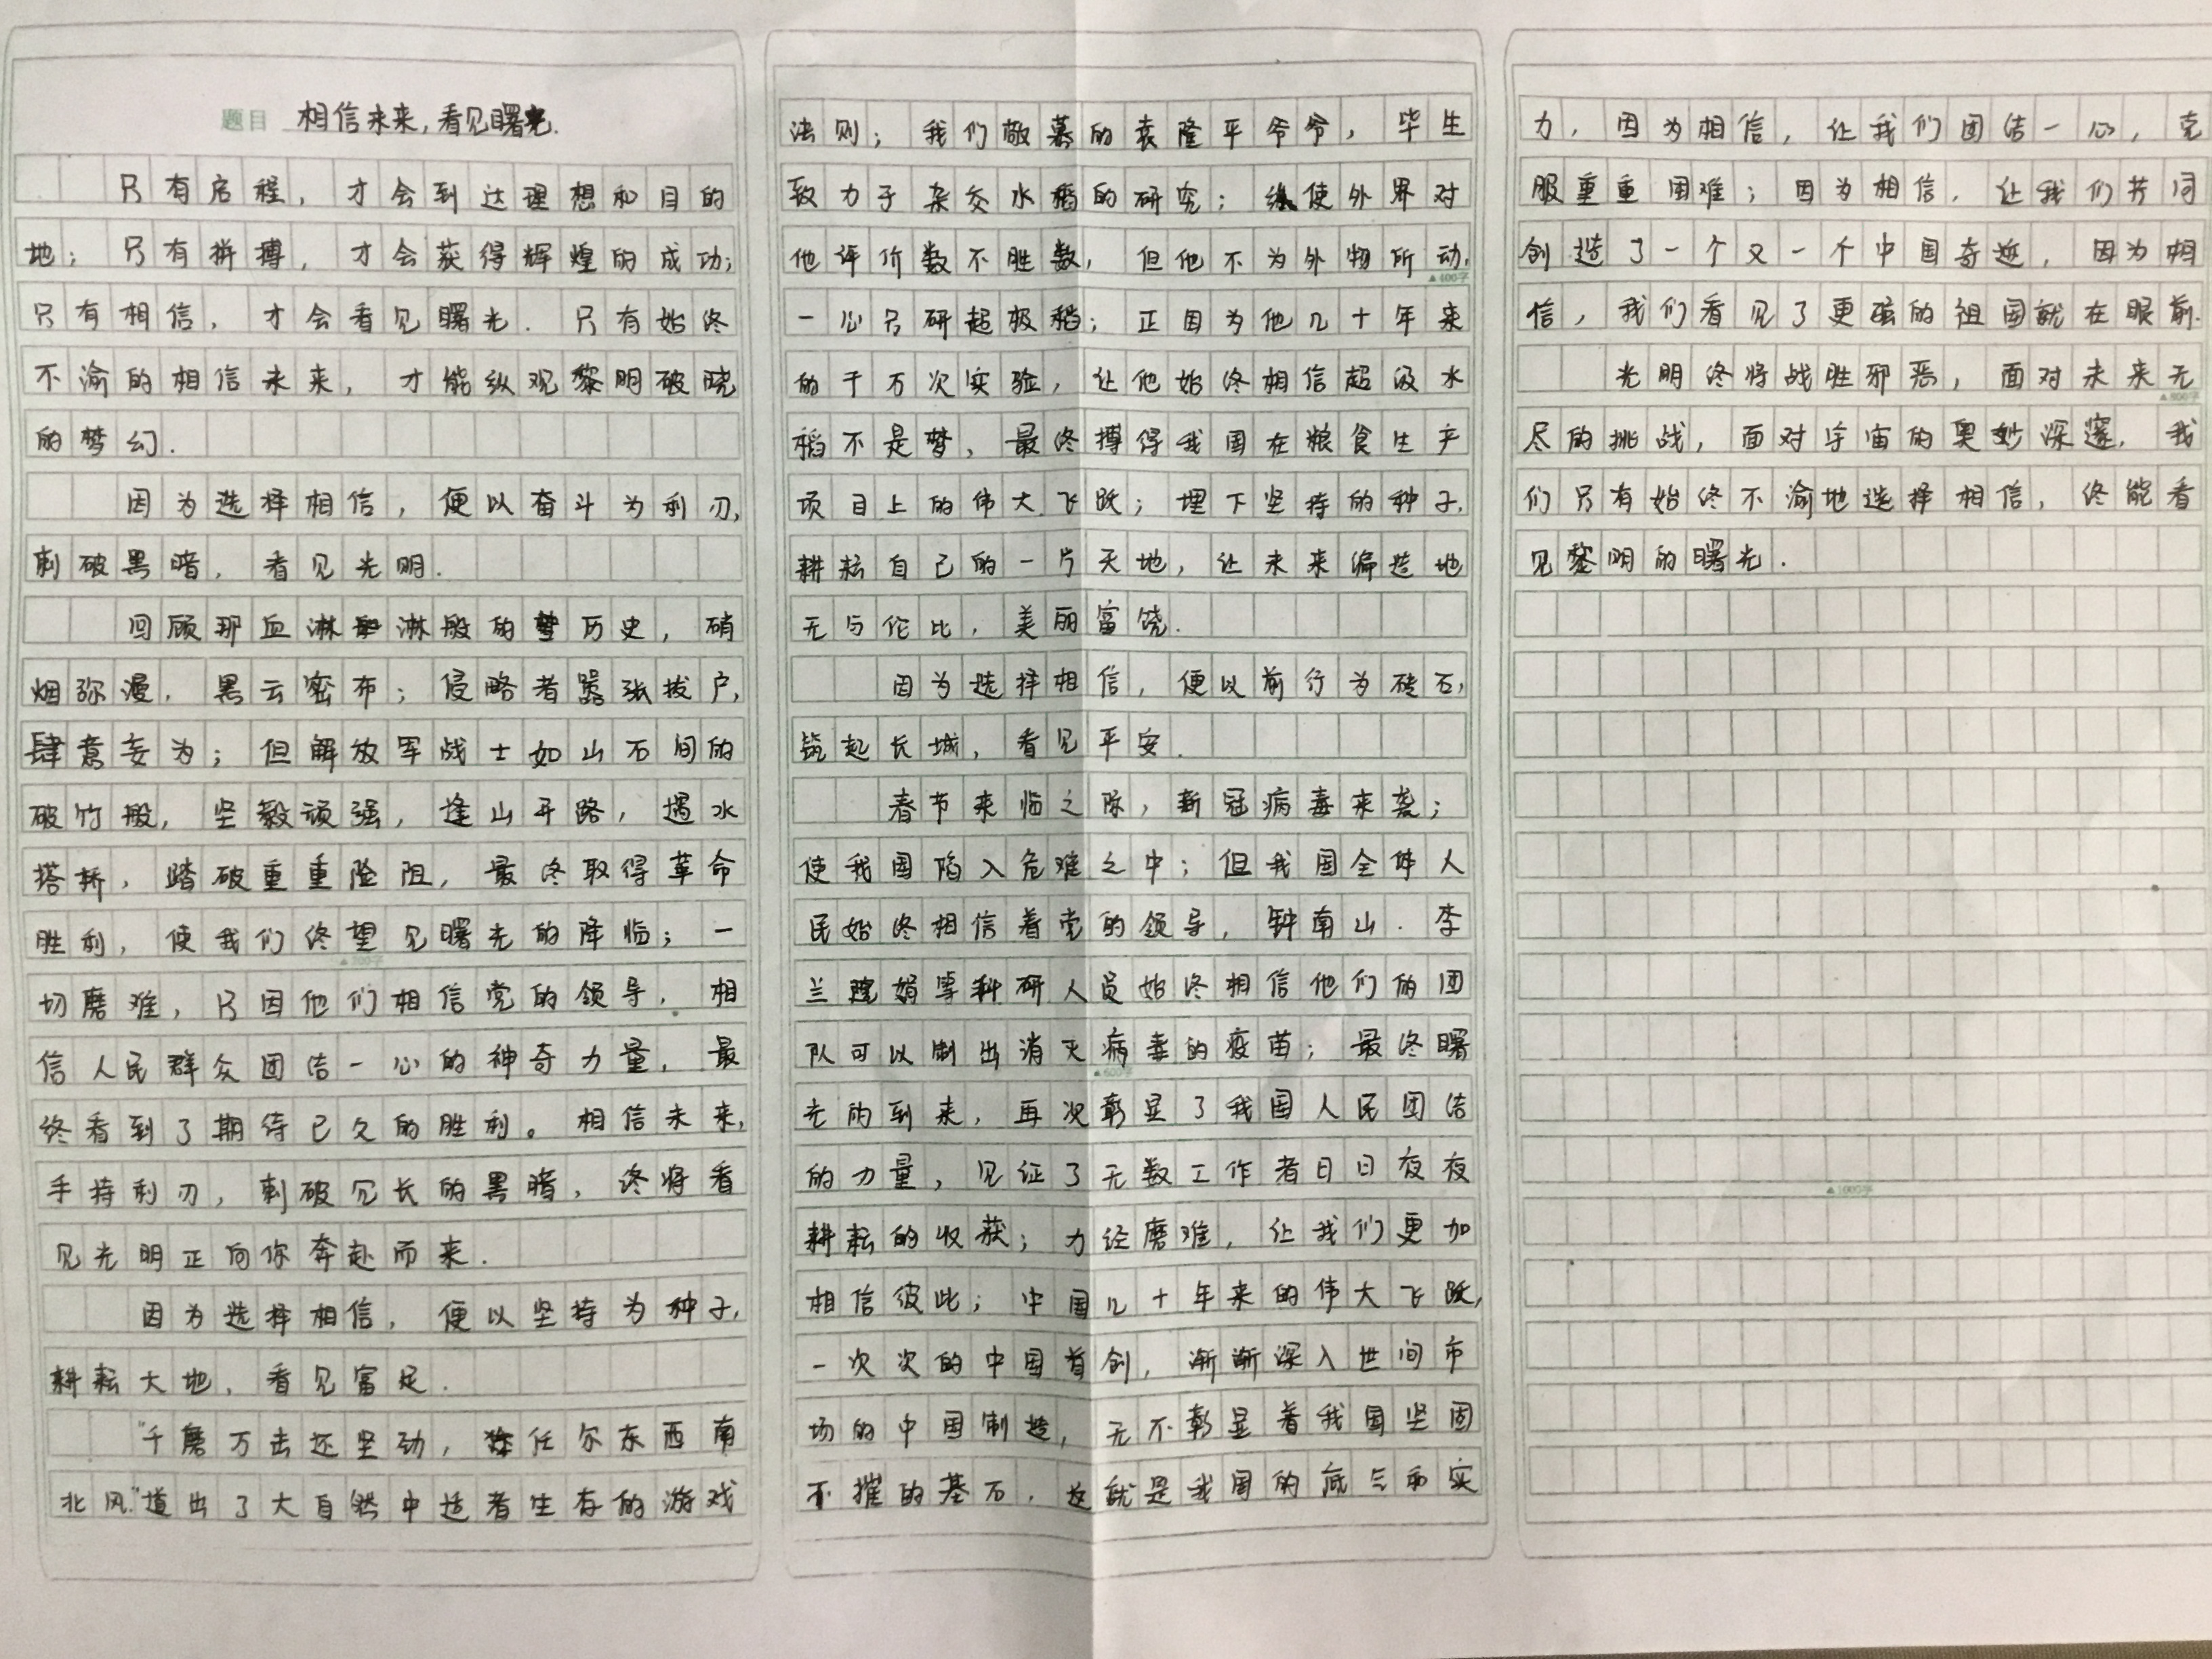 题目 相信未来，看见曙光.
只有启程，才会到达理想和目的
地；只有拼搏，才会获得辉煌的成功；
只有相信，才会看见曙光.只有始终
不渝的相信未来，才能纵观黎明破晓
的梦幻.
因为选择相信，便以奋斗为利刃，
刺破黑暗，看见光明.
回顾那血淋淋般的历史，硝
烟弥漫，黑云密布；侵略者嚣张拔户，
肆意妄为；但解放军战士如山石间的
破竹般，坚毅顽强，逢山开路，遇水
搭桥，踏破重重险阻，最终取得革命
胜利，使我们终望见曙光的降临；一
▲200字
切磨难，只因他们相信党的领导，相
信人民群众团结一心的神奇力量，最
终看到了期待已久的胜利。相信未来，
手持利刃，刺破冗长的黑暗，终将看
见光明正向你奔赴而来.
因为选择相信，便以坚持为种子，
耕耘大地，看见富足.
“千磨万击还坚劲，任尔东西南
北风.”道出了大自然中适者生存的游戏
法则；我们敬慕的袁隆平爷爷，毕生
致力于杂交水稻的研究；纵使外界对
他评价数不胜数，但他不为外物所动，
▲400字
一心只研超级稻；正因为他几十年来
的千万次实验，让他始终相信超级水
稻不是梦，最终搏得我国在粮食生产
项目上的伟大飞跃；埋下坚持的种子，
耕耘自己的一片天地，让未来偏造地
无与伦比，美丽富饶.
因为选择相信，便以前行为砖石，
筑起长城，看见平安.
春节来临之际，新冠病毒来袭；
使我国陷入危难之中；但我国全体人
民始终相信着党的领导，钟南山.李
兰娟等科研人员始终相信他们的团
队可以制出消灭病毒的疫苗；最终曙
▲600字
光的到来，再次彰显了我国人民团结
的力量，见证了无数工作者日日夜夜
耕耘的收获；力经磨难，让我们更加
相信彼此；中国几十年来的伟大飞跃，
一次次的中国首创，渐渐深入世间市
场的中国制造，无不彰显着我国坚固
不摧的基石，这就是我国的底气和实
力，因为相信，让我们团结一心，克
服重重困难；因为相信，让我们共同
创造了一个又一个中国奇迹，因为相
信，我们看见了更强的祖国就在眼前.
光明终将战胜邪恶，面对未来无
▲800字
尽的挑战，面对宇宙的奥妙深邃，我
们只有始终不渝地选择相信，终能看
见黎明的曙光.
▲1000字